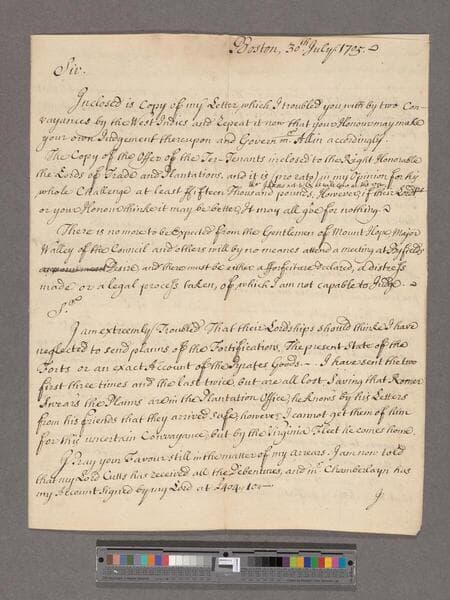 Boston, 30th July, 1705.
Sir.
Inclosed is Copy of my Letter which I troubled you with by two Con-
veyances by the West Indies and repeat it now that your Honour may make
your own Judgement thereupon and Govern mr. Allin accordingly.
The Copy of the Offer of the Ter-Tenants inclosed to the Right Honorable
the Lords of Trade and Plantations, and it is (pro rato) in my Opinion for his
whole Challenge at least fifteen Thousand pounds, However, if their Lordsps
or your Honour thinke it may be better, It may all goe for nothing.
There is no more to be Expected from the Gentlemen of Mount Hope, Major
Walley of the Council and others will by no means attend a meeting at Byfields
Desire, and there must be either a fforfeiture declared, a distress
made or a legal process taken, of which I am not capable to Judge.
Sr.
I am extremly Troubled That their Lordships should thinke I have
neglected to send planns of the Fortifications, The present State of the
Forts or an exact Account of the Pyrates Goods. I have sent the two
first three times and the last twice, but are all lost Saving that Romer
Swears the Planns are in the Plantation Office, he knows by his Letters
from his friends that they arrived safe, however I cannot get them of him
for this uncertain Conveyance, but by the Virginia Fleet he comes home.
I Pray your Favour still in the matter of my arrears I am now told
that my Lord Cutts has received all the Debentures, and mr. Chamberlayn has
my Account signed by my Lord at £404, 10